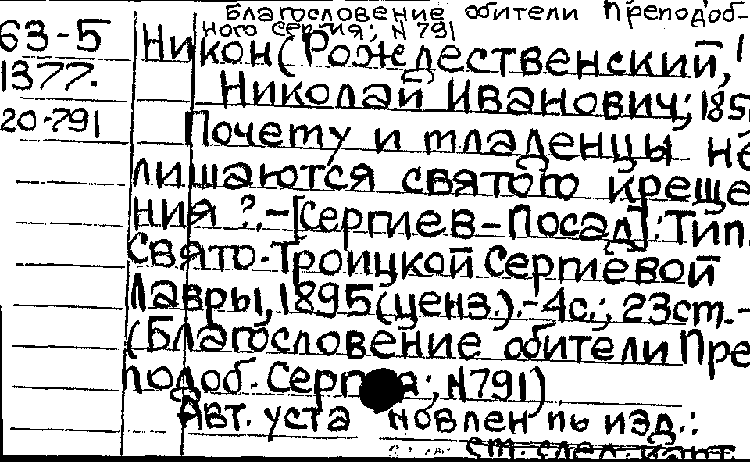 Благословение обители Преподоб-
ного Сергия; N 791
63-5 Никон (Рождественский,
1377. Николай Иванович; 185
20-791 Почему и младенцы не
лишаются святого креще
ния?.-[Сергиев-Посад]: Тип.
Свято-Троицкой Сергиевой
Лавры, 1895 (ценз.).-4с.; 23ст.-
(Благословение обители Пре
подоб. Сергия; N791)
Авт. уста новлен по изд.:
см. след. карт.